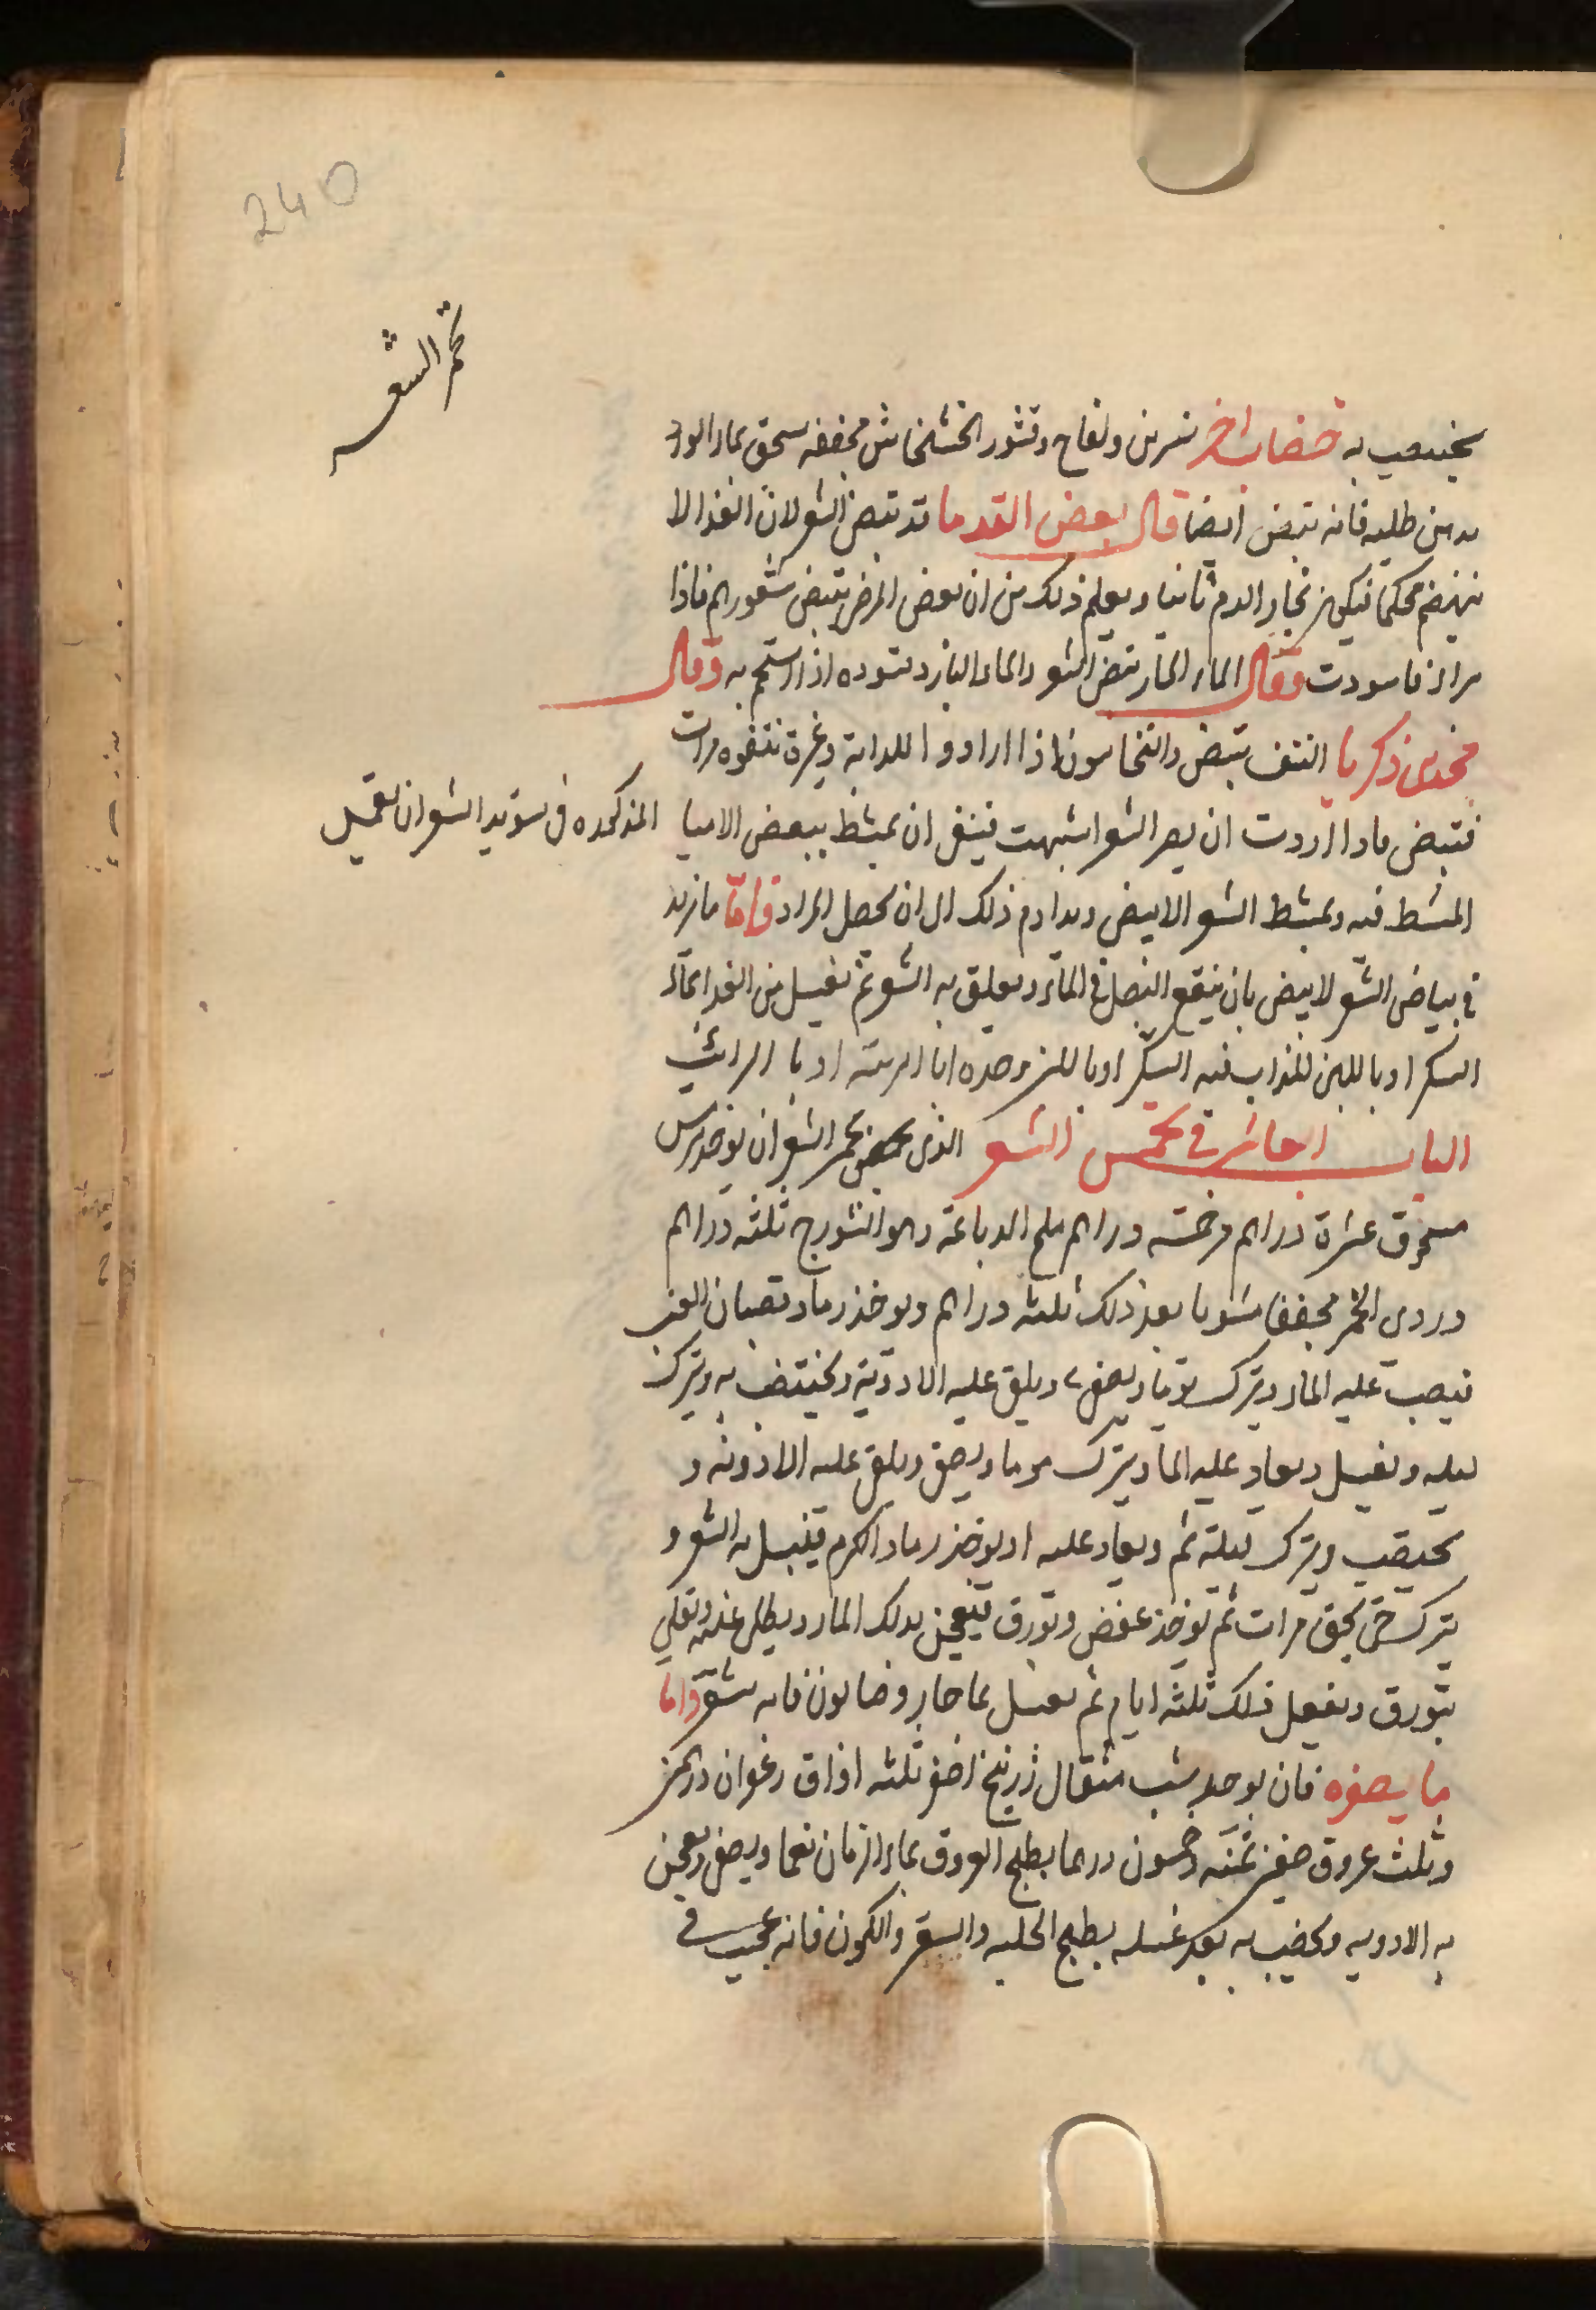 240
تحمر الشعر
يختضب به خضاب اخر نسرين ولفاح وقشور الخشخاش مجففه يسحق بماء الورد
طليه فانه يبيض ايضا قال بعض القدما قد يبيض الشعر لان الغذا لا
ينهضم محكما بخار الدم ثانيا ويعلم ذلك من ان بعض المرض يبيض شعورهم فاذا
فاسودت وقال الماء الحار يبيض الشعر والماء البارد يسوده اذا استحم به وقال
محمد بن زكريا النتف يبيض والنخاسون اذا ارادوا للدابة وغرة نتفوه مرات
فتبيض فاذا اردت ان يصر الشعر اشهب فينبغي ان يمشط ببعض الامياه المذكوره في تسويد الشعر ان يعمل
المشط فيه ويمشط الشعر الابيض ويداوم ذلك الى ان يحصل المراد فاما ما يزيد
في بياض الشعر الابيض بان ينقع البصل في الماء ويعلق به الشعر ثم يغسل من الغد بماء
السكر او باللبن المذاب فيه السكر او باللبن وحده او بالرائب
الباب العاشر في تحمير الشعر الذي يحمر الشعر ان يوخذ ترمس
مسحوق عشرة دراهم مر خمسه دراهم ملح الدباغة وهو الشورج ثلثه دراهم
دردى الخمر مجففا مشويا بعد ذلك ثلثه دراهم ويوخذ رماد قضبان العنب
فيصب عليه الماء ويترك يوما ويصفى ويلقى عليه الادوية ويختضب به ويترك
ليله ويغسل ويعاد عليه الما ويترك يوما ويصفى ويلقى عليه الادوية و
يختضب ويترك ليلة ثم ويعاد عليه او يوخذ رماد الكرم فيغسل به الشعر و
يترك حتى يجف مرات ثم يوخذ عفص وبورق فيعجن بذلك الماء ويطلى
بورق ويفعل ذلك ثلثه ايام ثم يغسل بما حار وصابون فانه يشقر واما
ما يصفره فان يوخذ شب مثقال زرنيخ اصفر ثلثه اواق زعفران درهمين
وثلث عروق صفر ثمنيه وخمسون درهما يطبخ العروق بماء الرمان نعما ويصفى ويعجن
به الادويه ويخضب به بعد غسله بطبيخ الحلبه والكمون فانه عجيب في